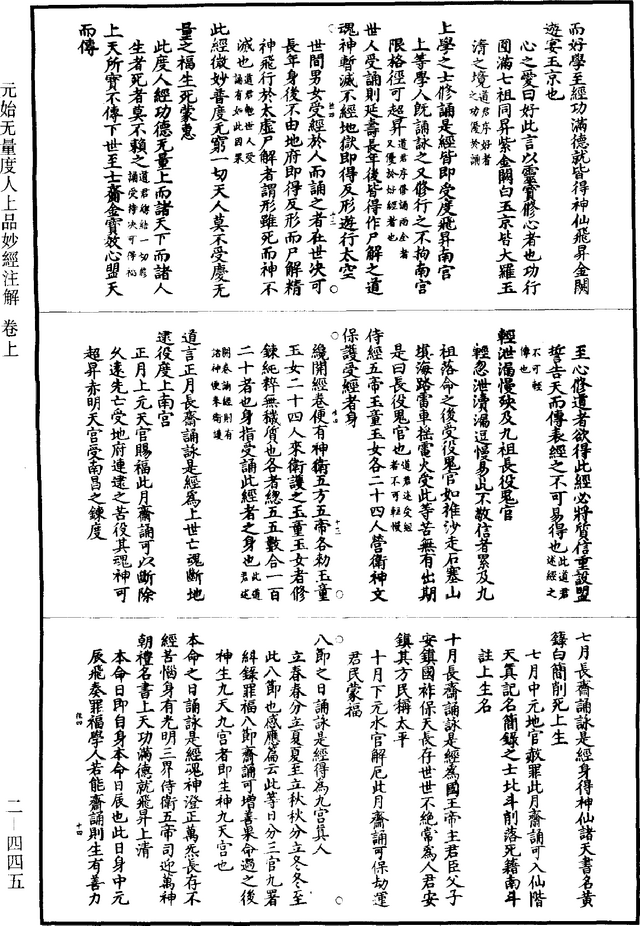 而好學至經功滿德就皆得神仙飛昇金闕
遊宴玉京也
心之愛曰好此言以靈寶修心者也功行
圓滿七祖同昇紫金闕白玉京皆大羅玉
清之境道君序好者之功優於誦
上學之士修誦是經皆即受度飛昇南宮
上等學人旣誦詠之又修行之不拘南宮
限格徑可超昇道君序修誦兩全者又優於好經者也
世人受誦則延壽長年後皆得作尸解之道
魂神暫滅不經地獄即得反形遊行太空
世間男女受經於人而誦之者在世决可
長年身後不由地府即得反形而尸解精
神飛行於太虛尸解者謂形雖死而神不
滅也道君勉世人受誦有如此因果
此經微妙普度无窮一切天人莫不受慶无
量之福生死蒙惠
此度人經功德无量上而諸天下而諸人
生者死者莫不賴之道君總結一切前誦受持决可得福
上天所寶不傳下世至士齎金寶效心盟天
而傳
至心修道者欲得此經必將質信重設盟
誓告天而傳表經之不可易得也此道君述經之不可輕傳也
輕泄漏慢殃及九祖長役鬼官
輕忽泄瀆漏逗慢易此不敬信者累及九
祖落命之後受役鬼官如椎沙走石塞山
填海路雷車搖電火受此等苦無有出期
是曰長役鬼官也道君述受經者不可輕慢
侍經五帝玉童玉女各二十四人營衛神文
保護受經者身
纔開經卷便有神衛五方五帝各勑玉童
玉女二十四人來衛護之玉童玉女者修
鍊純粹無穢質也各者總五五數合一百
二十者也身指受誦此經者之身也此道君述開卷誦經則有諸神便來衛護
道言正月長齋誦詠是經為上世亡魂斷地
逮役度上南宮
正月上元天官賜福此月齋誦可以斷除
久遠先亡受地府連逮之苦役其魂神可
超昇赤明天宮受南昌之鍊度
七月長齋誦詠是經身得神仙諸天書名黃
籙白簡削死上生
七月中元地官赦罪此月齋誦可入仙階
天箕記名簡錄之士北斗削落死籍南斗
註上生名
十月長齋誦詠是經為國王帝主君臣父子
安鎮國祚保天長存世世不絕常為人君安
鎮其方民稱太平
十月下元水官解厄此月齋誦可保劫運
君民蒙福
八節之日誦詠是經得為九宮真人
立春春分立夏夏至立秋秋分立冬冬至
此八節也感應篇云此等日分三官九署
糾錄罪福八節齋誦可增善果命過之後
神生九天九宮者即生神九天宮也
本命之日誦詠是經魂神澄正萬炁長存不
經苦惱身有光明三界侍衛五帝司迎萬神
朝禮名書上天功滿德就飛昇上清
本命日即自身本命日辰也此日身中元
辰飛奏罪福學人若能齋誦則生有善力
元始无量度人上品妙經注解 卷上
二—四四五